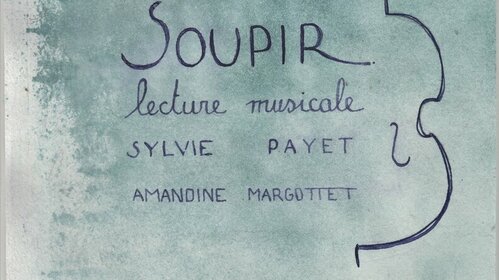 SOUPIR
lecture musicale
SYLVIE PAYET
AMANDINE MARGOTTET